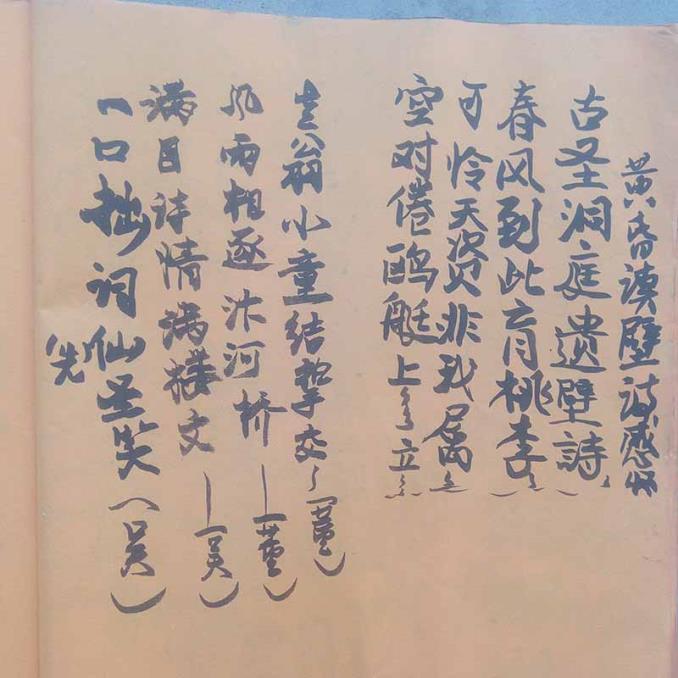 黄昏读壁诗感怀
古圣洞庭遗壁詩
春风到此育桃李
可怜天资非我属
空对倦鸥艇上立
老翁小童结挚交(董)
风雨相逐汴河桥(董)
满目诗情满楼文(吴)
一口拙词仙圣笑(吴)
先